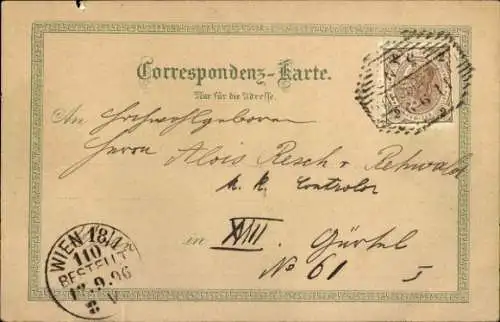 Correspondenz-Karte.
Nur für die Adresse.
An Hochwohlgeboren
Herrn Alois Resch v. Rehwald
K. K. Controlor
in XVIII Gürtel
No 61
WIEN 18/1
110
BESTELLT
12.9.96
8 V